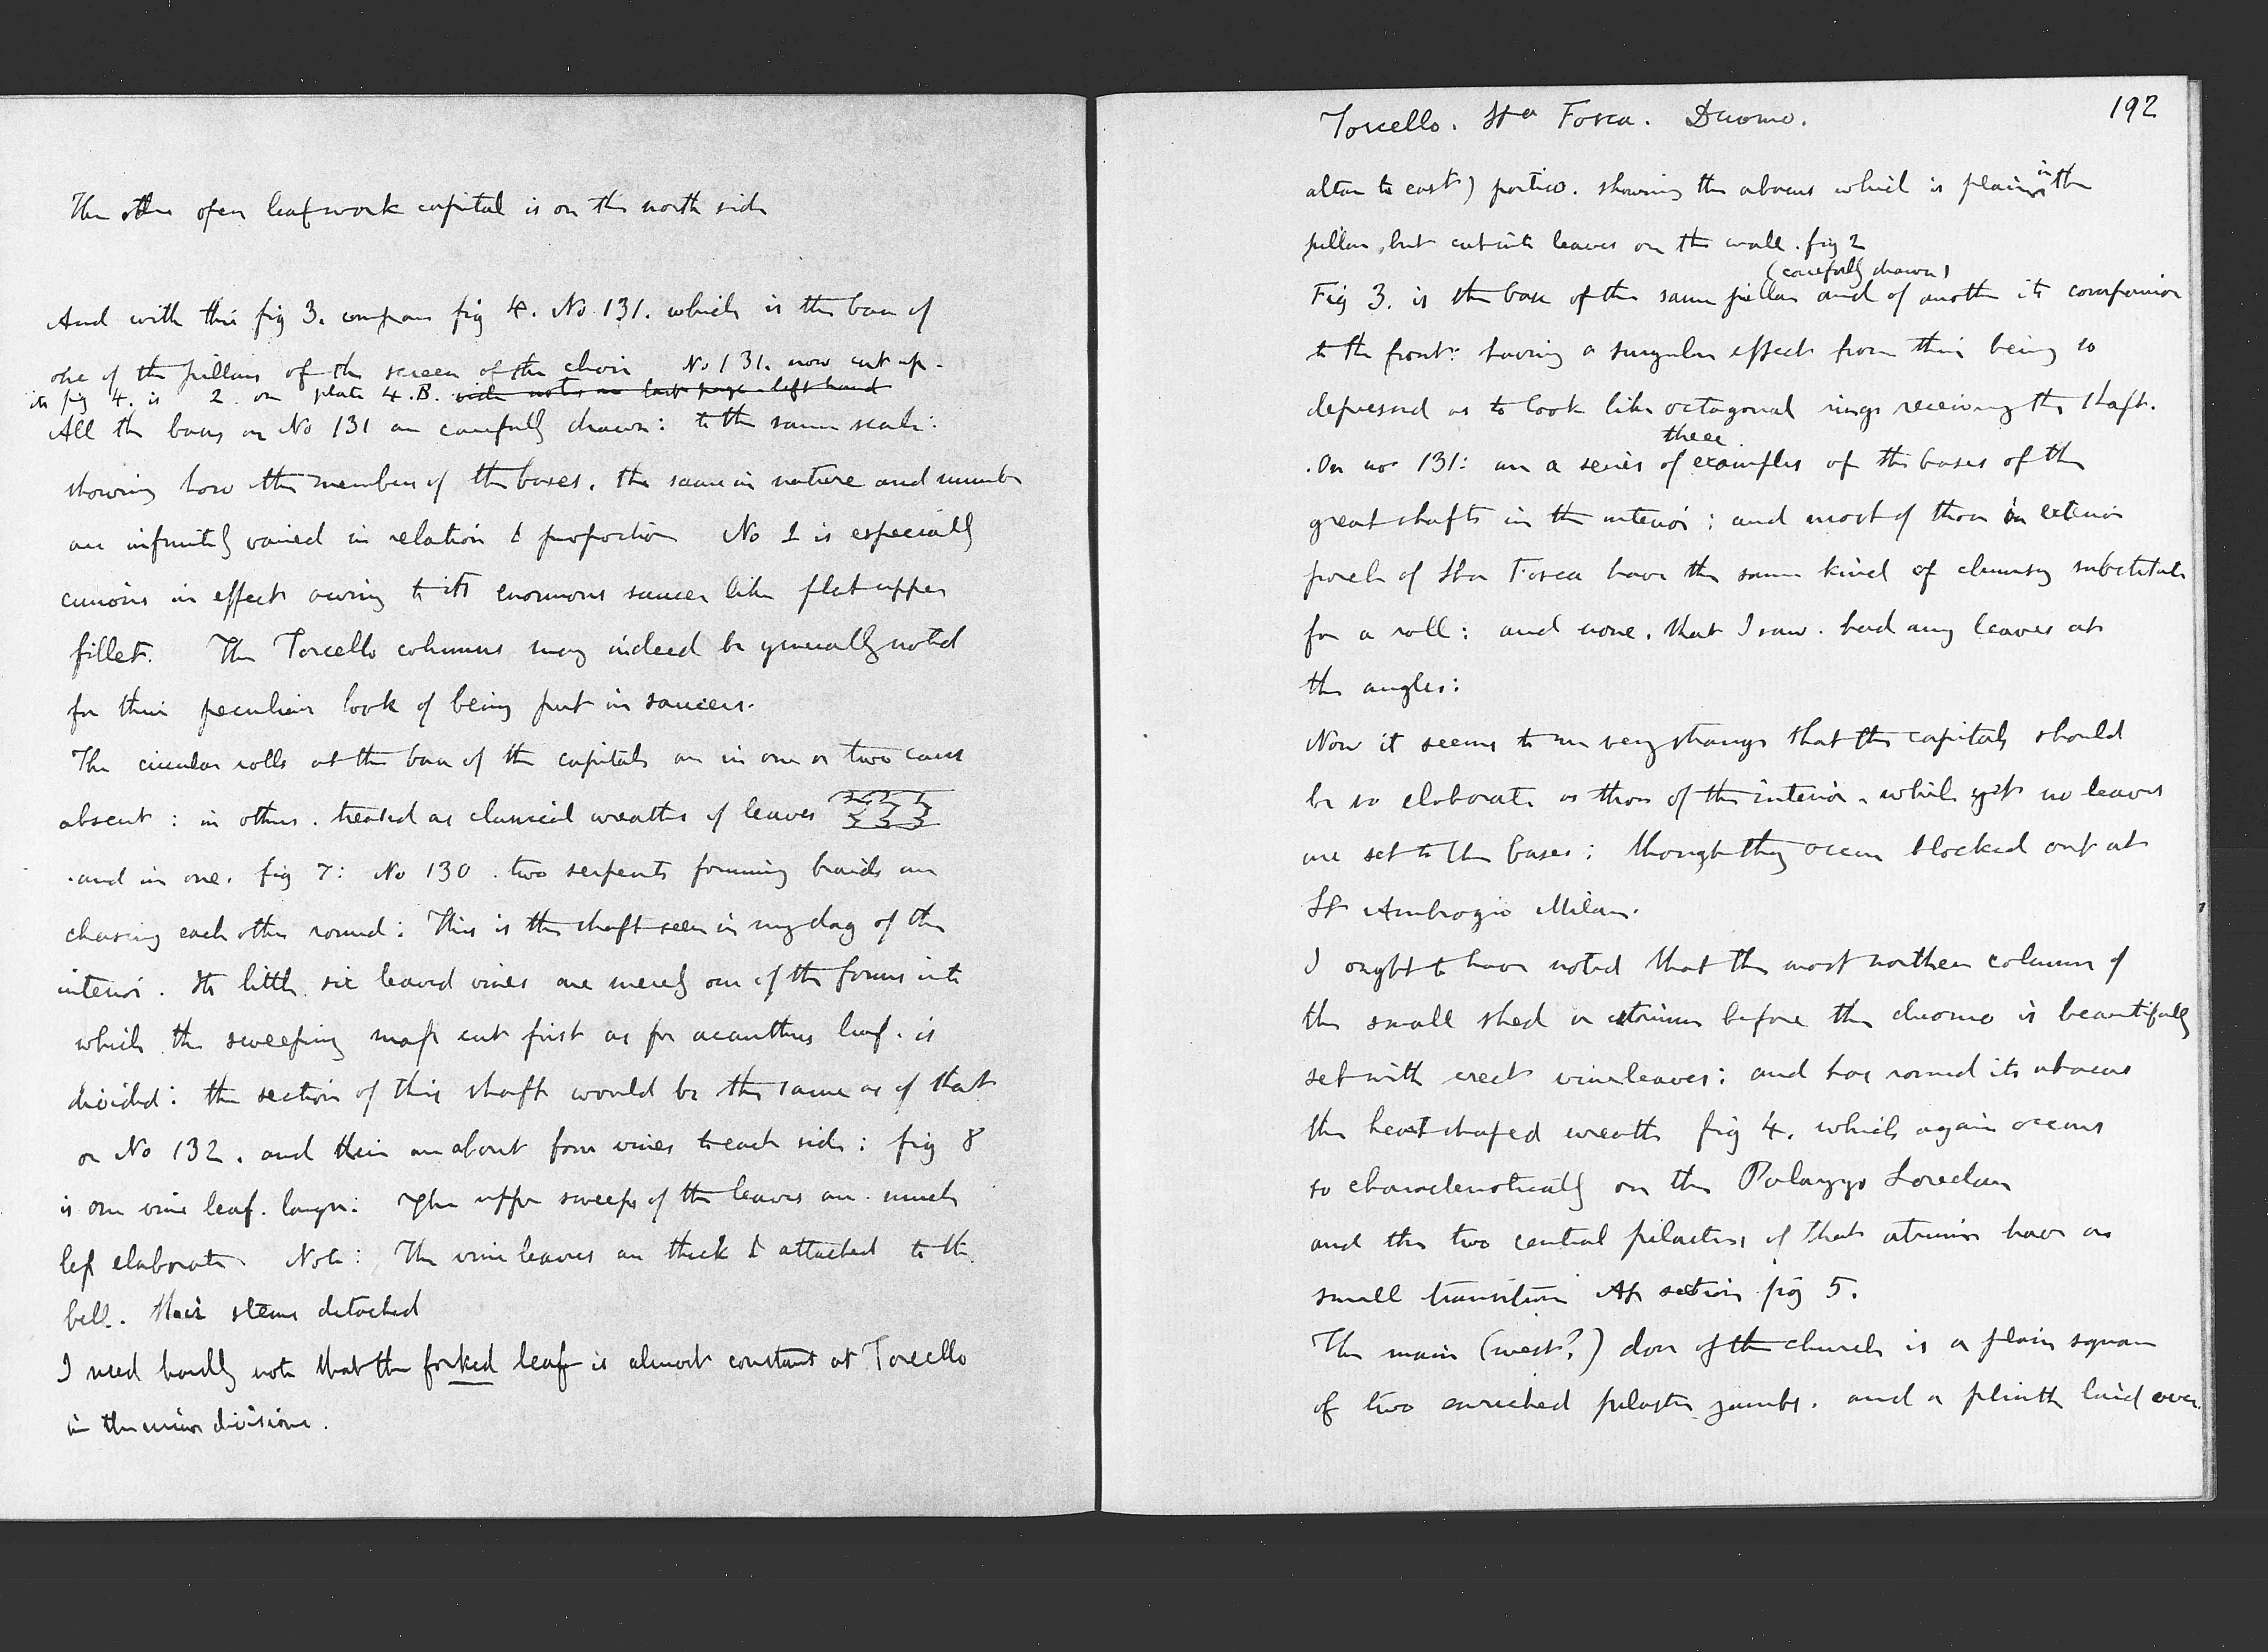 The other open leafwork capital is on the north side
And with this fig 3. compare fig 4. No 131. which is the base of
one of the pillars of the screen of the choir No 131. now cut up.
its fig 4. is 2 on plate 4.B. vide notes on last page left hand
All the bases on No 131 are carefully drawn: to the same scale:
showing how the members of the bases. the same in nature and number
are infinitely varied in relation & proportion No 1 is especially
curious in effect owing to its enormous saucer like flat upper
fillet. The Torcello columns may indeed be generally noted
for their peculiar look of being put in saucers.
The circular rolls at the base of the capitals are in one or two cases
absent: in others. treated as classical wreaths of leaves
and in one. fig 7: No 130. two serpents forming braids are
chasing each other round: This is the shaft seen in my dag of the
interior. Its little six leaved vines are merely one of the forms into
which the sweeping mass cut first as for acanthus leaf. is
divided: the section of this shaft would be the same as of that
on No 132. and there are about four vines to each side: fig 8
is one vine leaf. larger: The upper sweeps of the leaves are much
less elaborate Note: The vine leaves are thick & attached to the
bell. their stems detached
I need hardly note that the forked leaf is almost constant at Torcello
in the minor divisions.
192
Torcello. Sta Fosca. Duomo.
altar to east) portico. showing the abacus which is plain in the
pillar, but cut into leaves on the wall. fig 2
Fig 3. is the base of the same pillar (carefully drawn) and of another its companion
to the front: having a singular effect from their being so
depressed as to look like octagonal rings receiving the shaft.
On no 131: are a series of three examples of the bases of the
great shafts in the interior: and most of those in exterior
porch of Sta Fosca have the same kind of clumsy substitute
for a roll: and none, that I saw. had any leaves at
the angles:
Now it seems to me very strange that the capitals should
be so elaborate as those of the interior, while yet no leaves
are set to the bases: though they occur blocked out at
St Ambrogio Milan.
I ought to have noted that the most northern column of
the small shed or atrium before the duomo is beautifully
set with erect vineleaves: and has round its abacus
the heart shaped wreath fig 4. which again occurs
so characteristically on the Palazzo Loredan
and the two central pilasters of that atrium have as
small transition Ap section fig 5.
The main (west?) door of the church is a plain square
of two enriched pilaster jambs. and a plinth laid over.